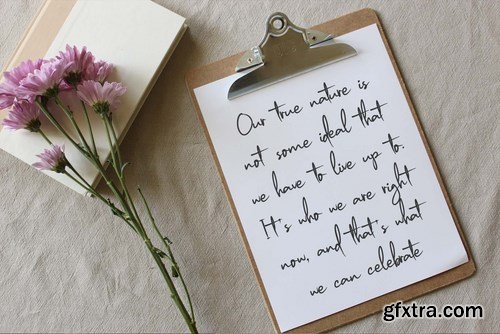 Our true nature is
not some ideal that
we have to live up to.
It's who we are right
now, and that's what
we can celebrate
gfxtra.com